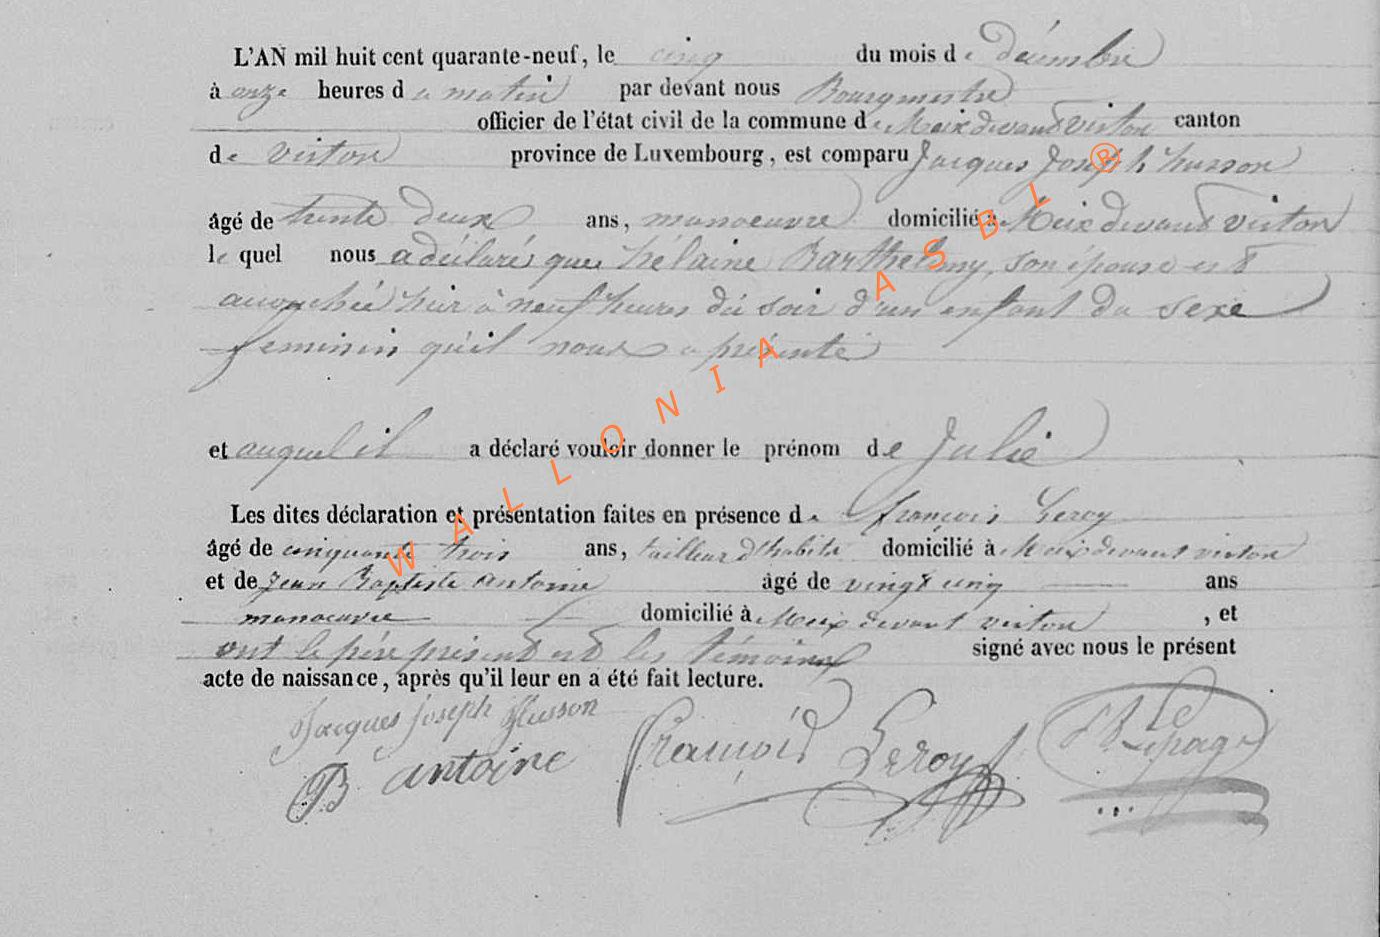 L'AN mil huit cent quarante-neuf, le cinq du mois de décembre
à onze heures du matin par devant nous Bourgmestre
officier de l'état civil de la commune de Meix devant Virton canton
de virton province de Luxembourg, est comparu Jacques Joseph husson
âgé de trente deux ans, manoeuvre domicilié à Meix devant virton
le quel nous a déclaré que hélaine Barthelemy, son épouse est
accouchée hier à neuf heures du soir d'un enfant du sexe
feminin qu'il nous a présenté
et auquel il a déclaré vouloir donner le prénom de Julie
Les dites déclaration et présentation faites en présence de françois Leroy
âgé de cinquante trois ans, tailleur d'habits domicilié à Meix devant virton
et de Jean Baptiste antoine âgé de vingt cinq ans
manoeuvre domicilié à Meix devant virton, et
ont le père présent et les témoins signé avec nous le présent
acte de naissance, après qu'il leur en a été fait lecture.
Jacques joseph Husson
B antoine François Leroy Lepage
WALLONIA ASBL ®